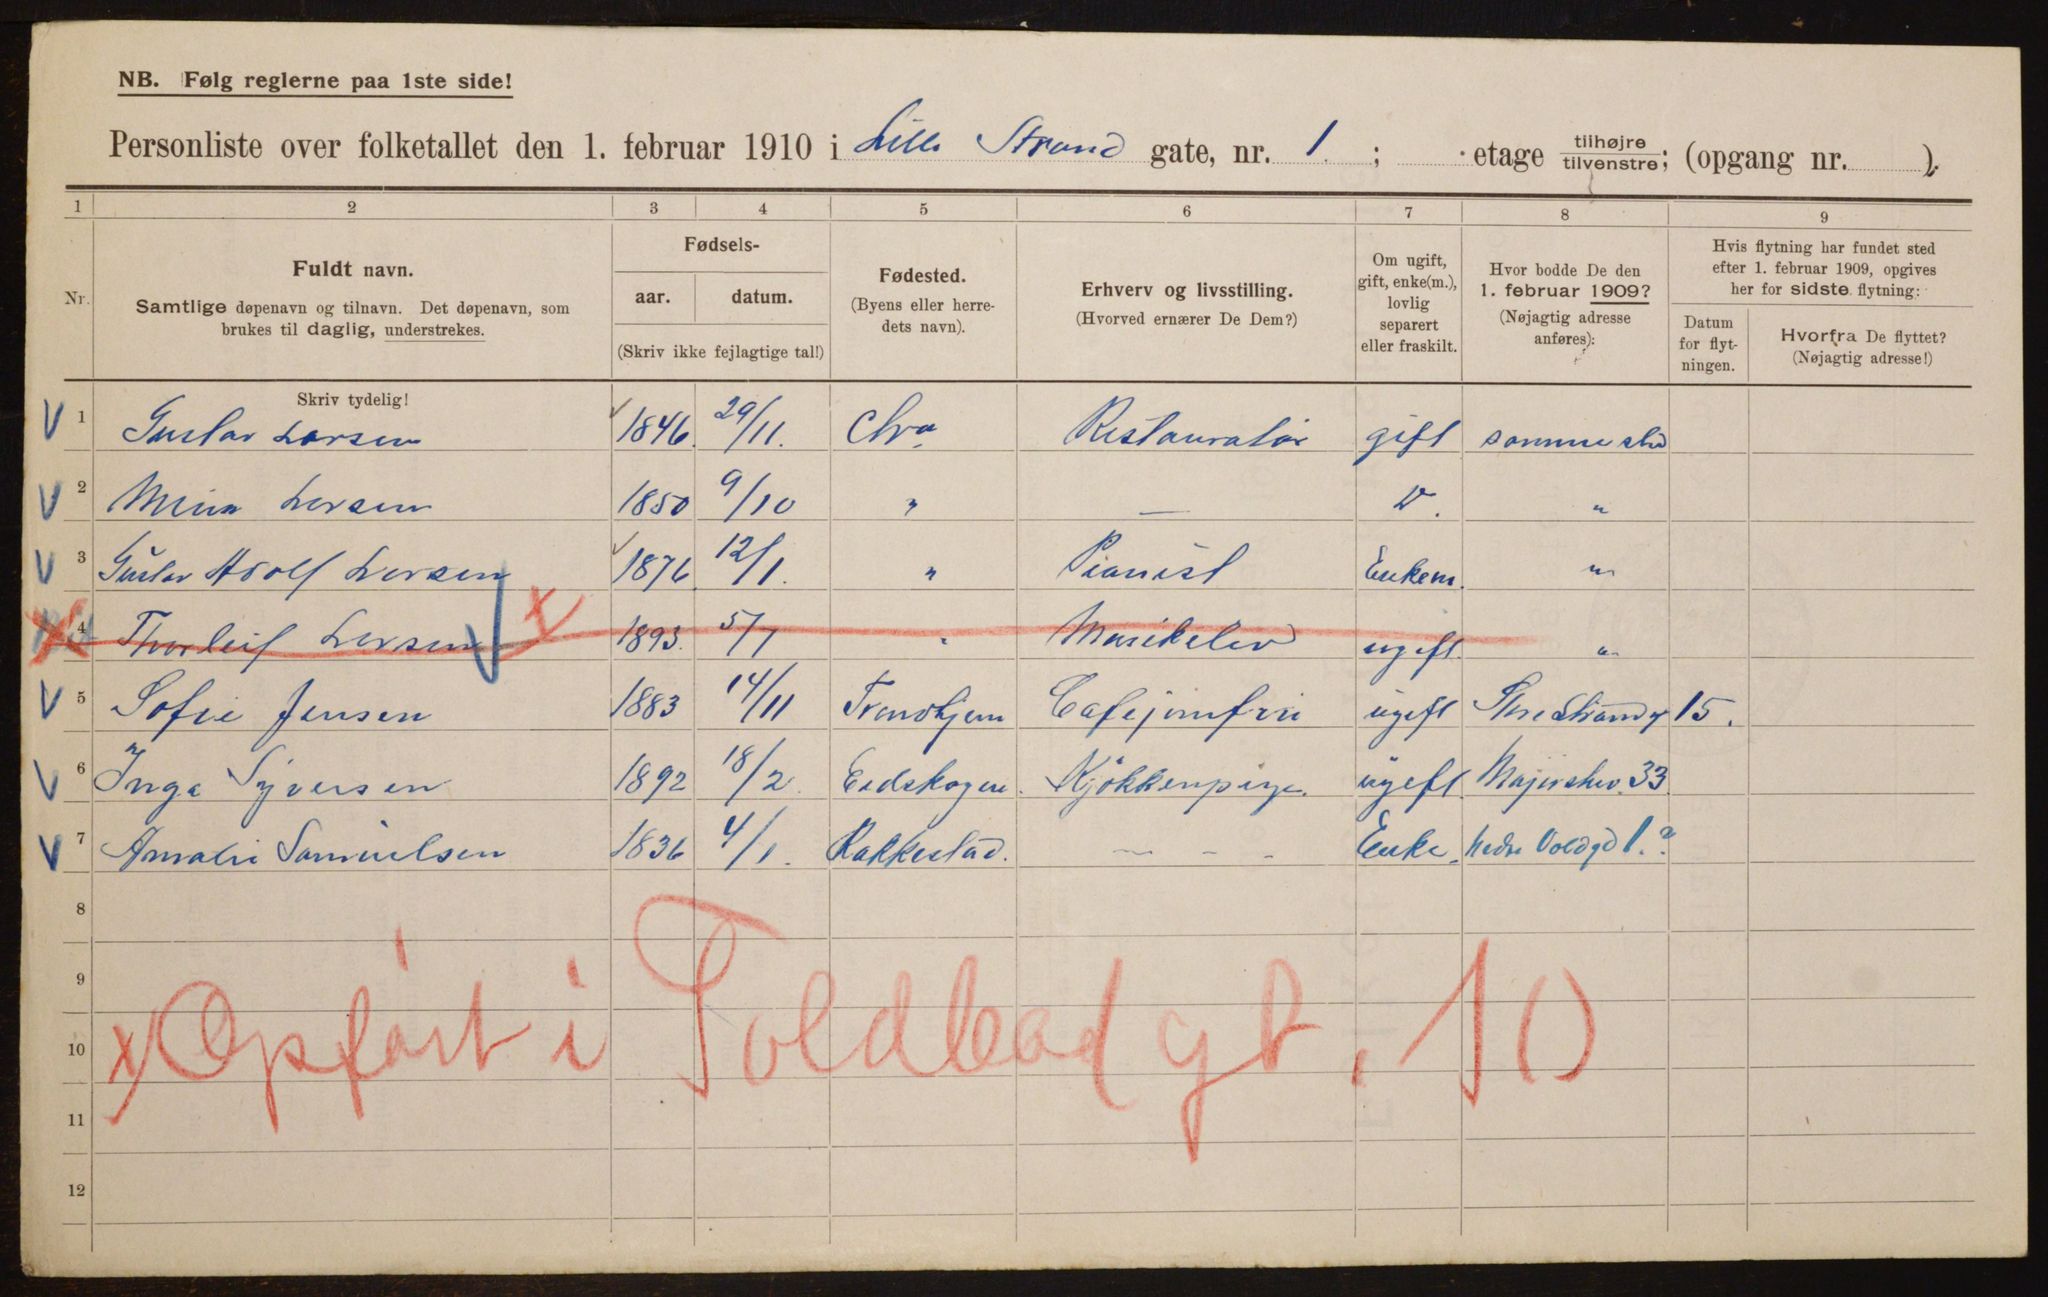 NB. Følg reglerne paa 1ste side!
Personliste over folketallet den 1. februar 1910 i Lille Strand gate, nr. 1. ; etage tilhøjre/tilvenstre; (opgang nr. ).
1 2 3 4 5 6 7 8 9
Nr.
Fuldt navn.
Samtlige døpenavn og tilnavn. Det døpenavn, som
brukes til daglig, understrekes.
Skriv tydelig!
Fødsels-
aar. datum.
(Skriv ikke fejlagtige tal!)
Fødested.
(Byens eller herre-
dets navn).
Erhverv og livsstilling.
(Hvorved ernærer De Dem?)
Om ugift,
gift, enke(m.),
lovlig
separert
eller fraskilt.
Hvor bodde De den
1. februar 1909?
(Nøjagtig adresse
anføres):
Hvis flytning har fundet sted
efter 1. februar 1909, opgives
her for sidste flytning:
Datum
for flyt-
ningen.
Hvorfra De flyttet?
(Nøjagtig adresse!)
V 1 Gustav Larsen 1846. 29/11. Chra Restauratør gift samme sted
V 2 Mina Larsen 1850 9/10 " — D. "
V 3 Gustav Adolf Larsen 1876 12/1. " Pianist Enkem. "
4 Thorleif Larsen x 1893. 5/7 " Musikelev ugift. "
V 5 Sofie Jensen 1883 14/11 Trondhjem Cafejomfru ugift Store Strandg 15.
V 6 Inga Syversen 1892 18/2. Eidskogen. Kjøkkenpige. ugift. 33.
V 7 Amalie Samuelsen 1836 4/1. Rakkestad. — - - Enke. Nedre Voldgd 1.?
8
9
x/ Opført i Toldbodgt. 10
10
11
12